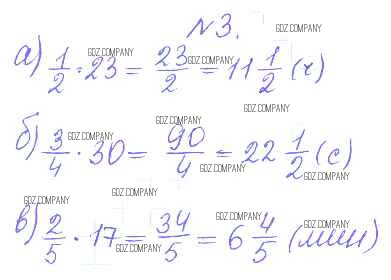 №3.
GDZ.COMPANY
а) 1/2 · 23 = 23/2 = 11 1/2 (ч)
GDZ.COMPANY GDZ.COMPANY
GDZ.COMPANY
б) 3/4 · 30 = 90/4 = 22 1/2 (с)
GDZ.COMPANY GDZ.COMPANY
GDZ.COMPANY GDZ.COMPANY
GDZ.COMPANY GDZ.COMPANY
в) 2/5 · 17 = 34/5 = 6 4/5 (мин)
GDZ.COMPANY GDZ.COMPANY
GDZ.COMPANY GDZ.COMPANY